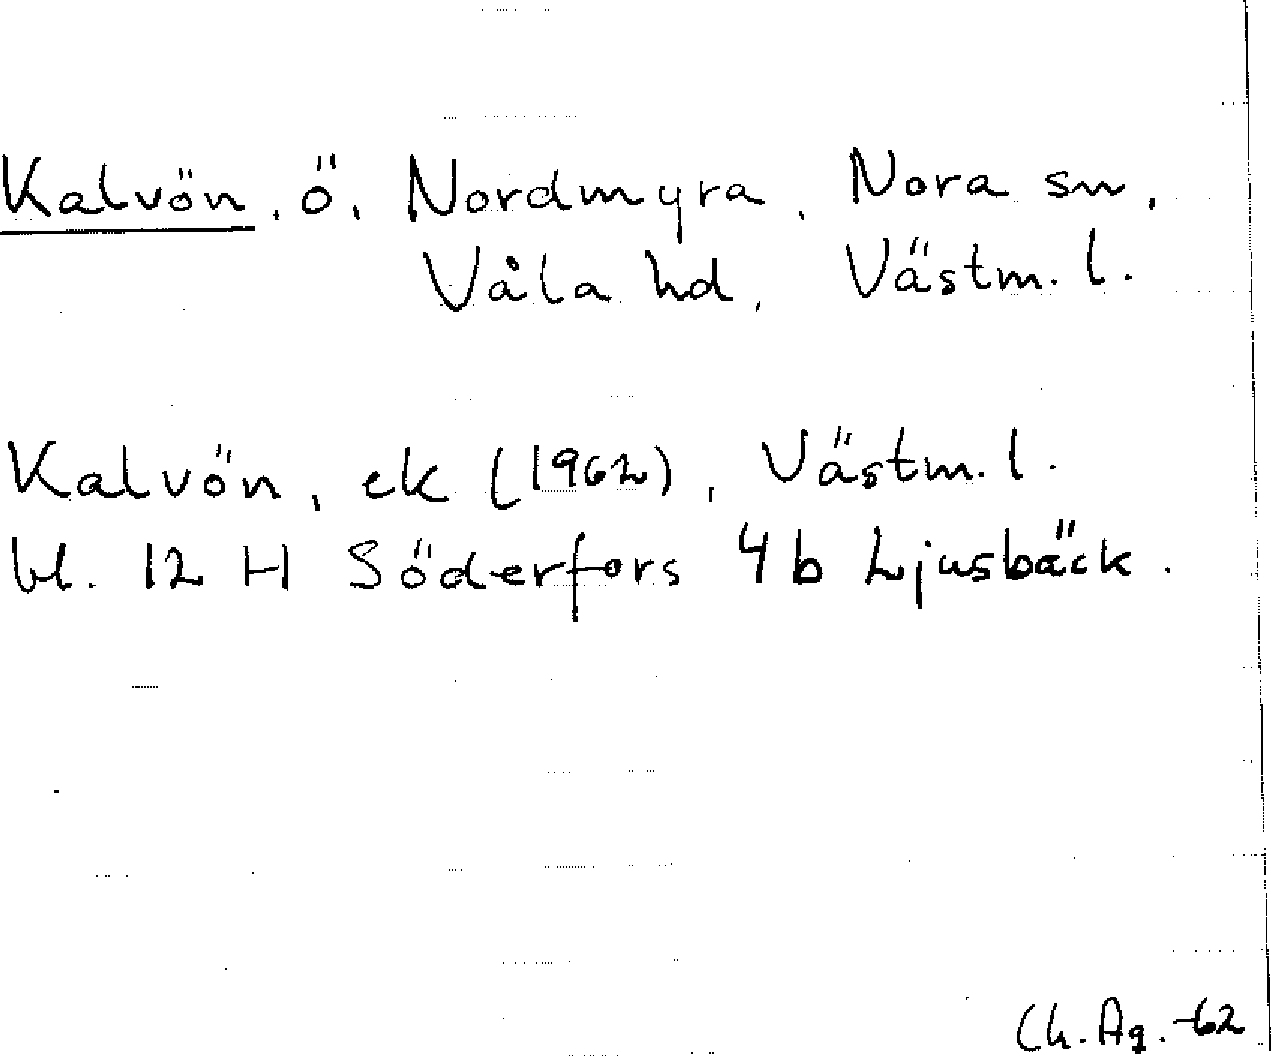 Kalvön, ö, Nordmyra, Nora sn,
Våla hd, Västm. l.
Kalvön, ek (1962), Västm. l.
bl. 12 H Söderfors 4b Ljusbäck.
Ch. Ag. -62